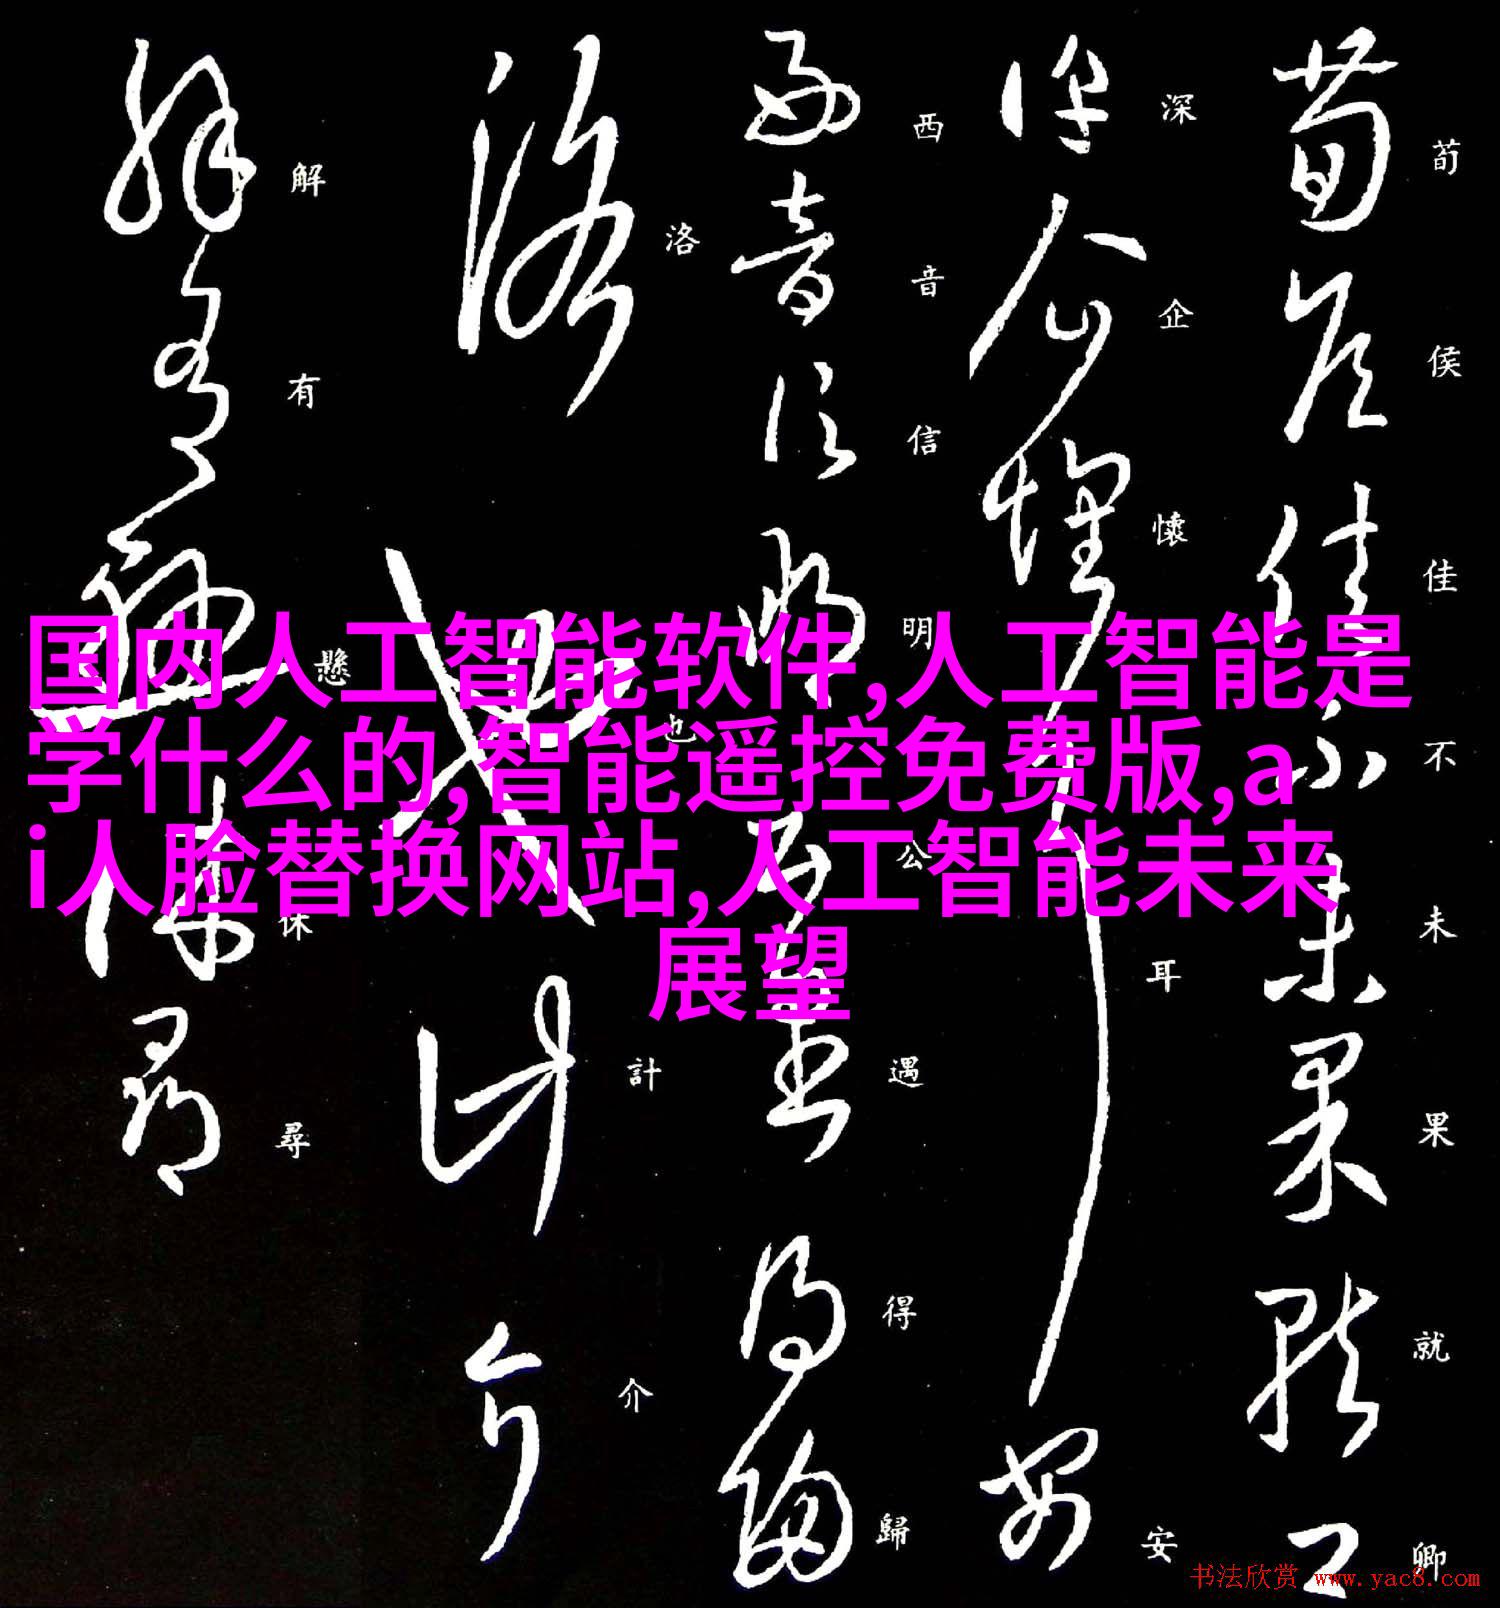 荀侯佳不未果就卿
深企懷耳安
西音信明公遇得歸
洛也計介
解有懸休尋
国内人工智能软件,人工智能是
学什么的,智能遥控免费版,a
i人脸替换网站,人工智能未来
展望
书法欣赏 www.yac8.com